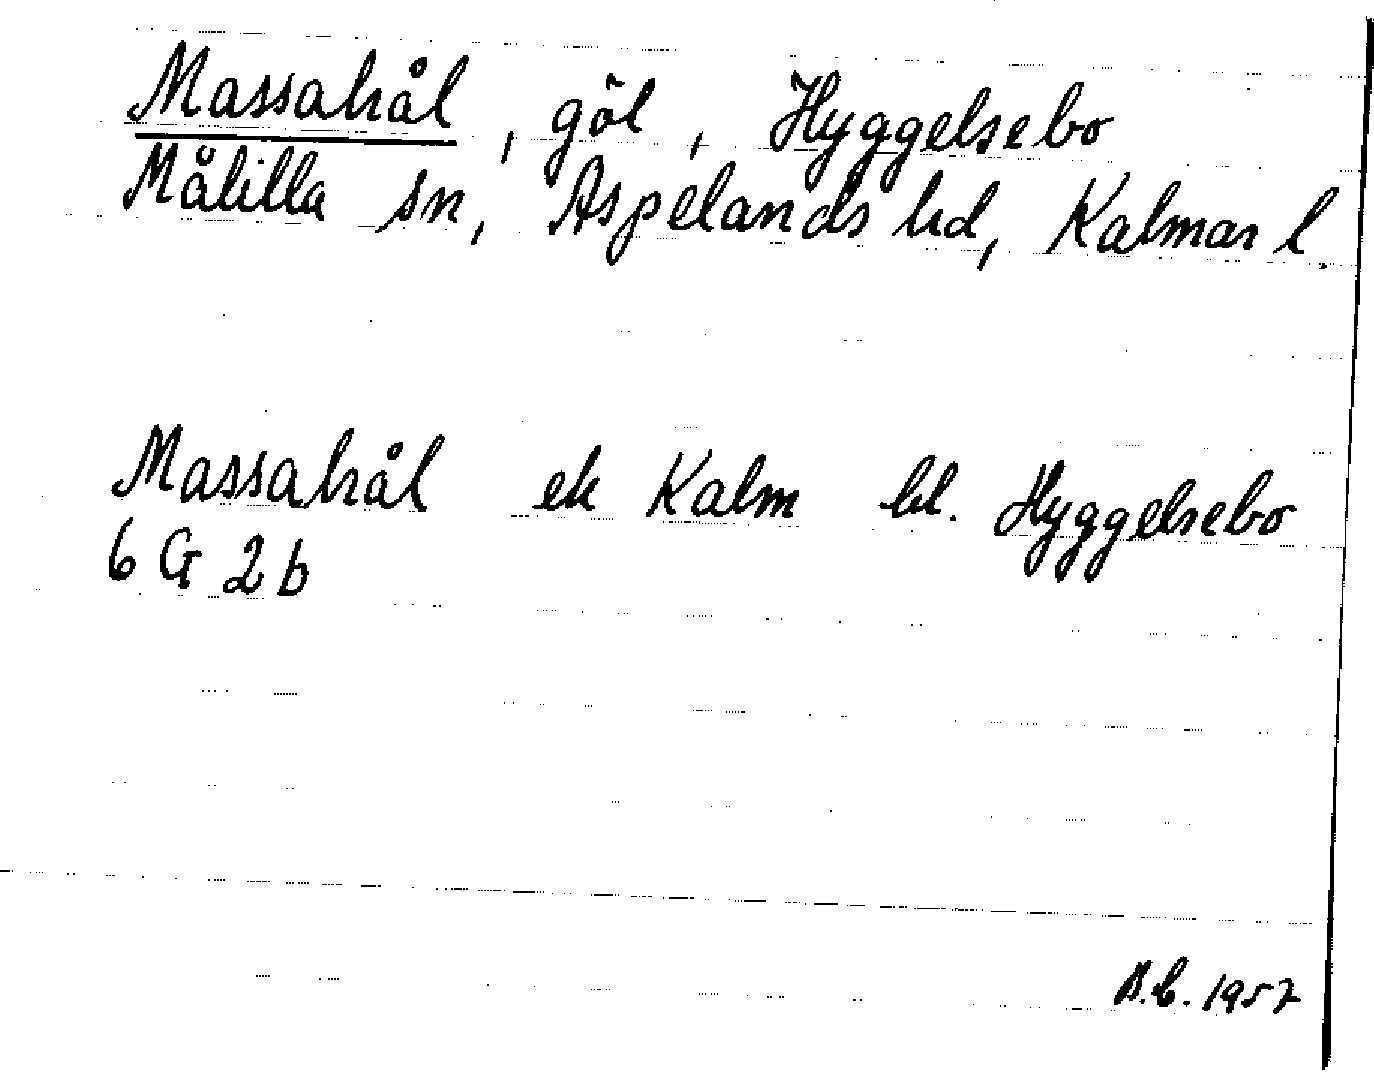 Massahål, göl, Hyggelsebo
Målilla sn, Aspelands hd, Kalmar l.
Massahål ek Kalm bl. Hyggelsebo
6 G 2 b
B.C. 1957